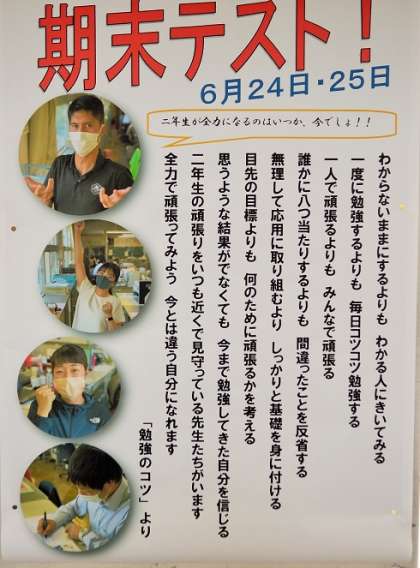 期末テスト！
6月24日・25日
二年生が全力になるのはいつか、今でしょ！！
わからないままにするよりも わかる人にきいてみる
一度に勉強するよりも 毎日コツコツ勉強する
一人で頑張るよりも みんなで頑張る
誰かに八つ当たりするよりも 間違ったことを反省する
無理して応用に取り組むより しっかりと基礎を身に付ける
目先の目標よりも 何のために頑張るかを考える
思うような結果がでなくても 今まで勉強してきた自分を信じる
二年生の頑張りをいつも近くで見守っている先生たちがいます
全力で頑張ってみよう 今とは違う自分になれます
「勉強のコツ」より